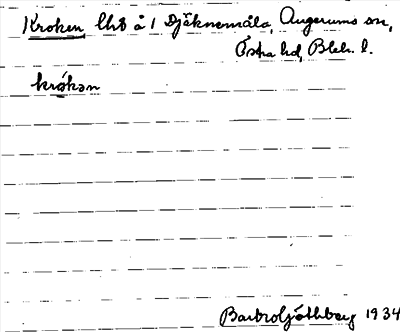 Kroken, lht å 1 Djäknemåla, Augerums sn,
Östra hd, Blek. l.
krókən
Barbro Götberg 1934